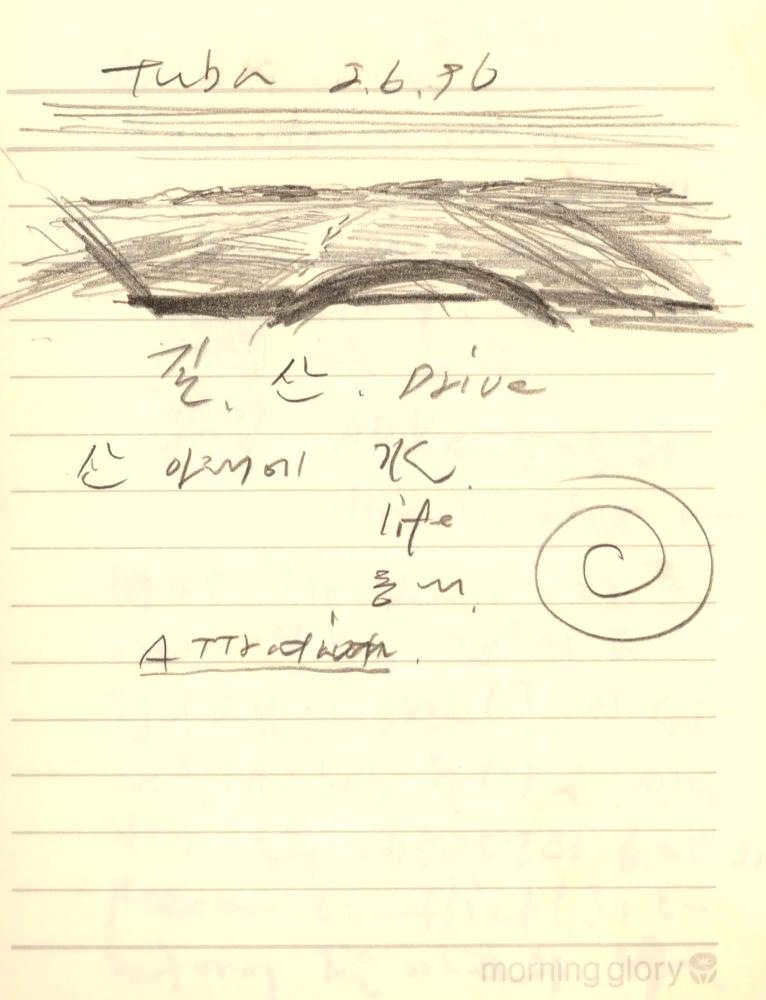 Tuba 2.6.96
길. 산. Drive
산 아래에
life
Attraction.
morning glory